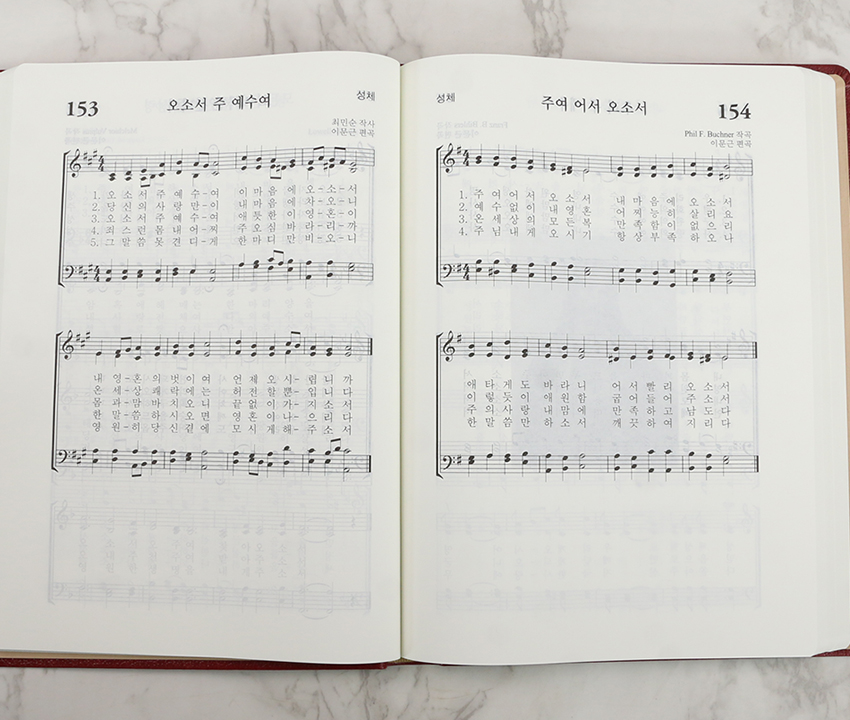 153
오소서 주 예수여
성체
최민순 작사
이문근 편곡
1. 오 소 서 주 예 수 - 여 이 마 음 에 오 - 소 - 서
2. 당 신 의 사 랑 만 - 이 내 마 음 에 차 - 오 - 니
3. 오 소 서 주 예 수 - 여 애 틋 한 이 영 - 혼 - 이
4. 죄 스 런 몸 내 어 - 찌 주 오 심 바 라 - 리 - 까
5. 그 말 씀 못 견 디 - 게 한 마 디 만 비 - 오 - 니
내 영 - 혼 의 벗 이 여 언 제 오 시 - 렵 니 까
온 세 - 상 쾌 락 에 오 허 전 할 뿐 - 입 니 다
몸 과 - 맘 바 치 는 니 끝 없 이 가 - 지 소 서
한 말 - 씀 하 시 오 면 영 혼 이 나 - 으 리 다
영 원 - 히 당 신 곁 에 모 시 게 해 - 주 소 서
성체
주여 어서 오소서
154
Phil F. Buchner 작곡
이문근 편곡
1. 주 여 어 서 오 소 서 내 마 음 에 오 소 서
2. 예 수 없 이 내 영 혼 어 찌 능 히 살 리 요
3. 온 세 상 의 모 든 복 만 족 함 이 없 으 리
4. 주 님 내 게 오 시 기 항 상 부 족 하 오 나
애 타 게 도 바 라 니 어 서 빨 리 오 소 서
이 렇 듯 이 애 원 함 굽 어 들 어 주 소 서
주 의 사 랑 내 맘 에 만 족 하 고 남 도 다
한 말 씀 만 하 소 서 깨 끗 하 여 지 리 다